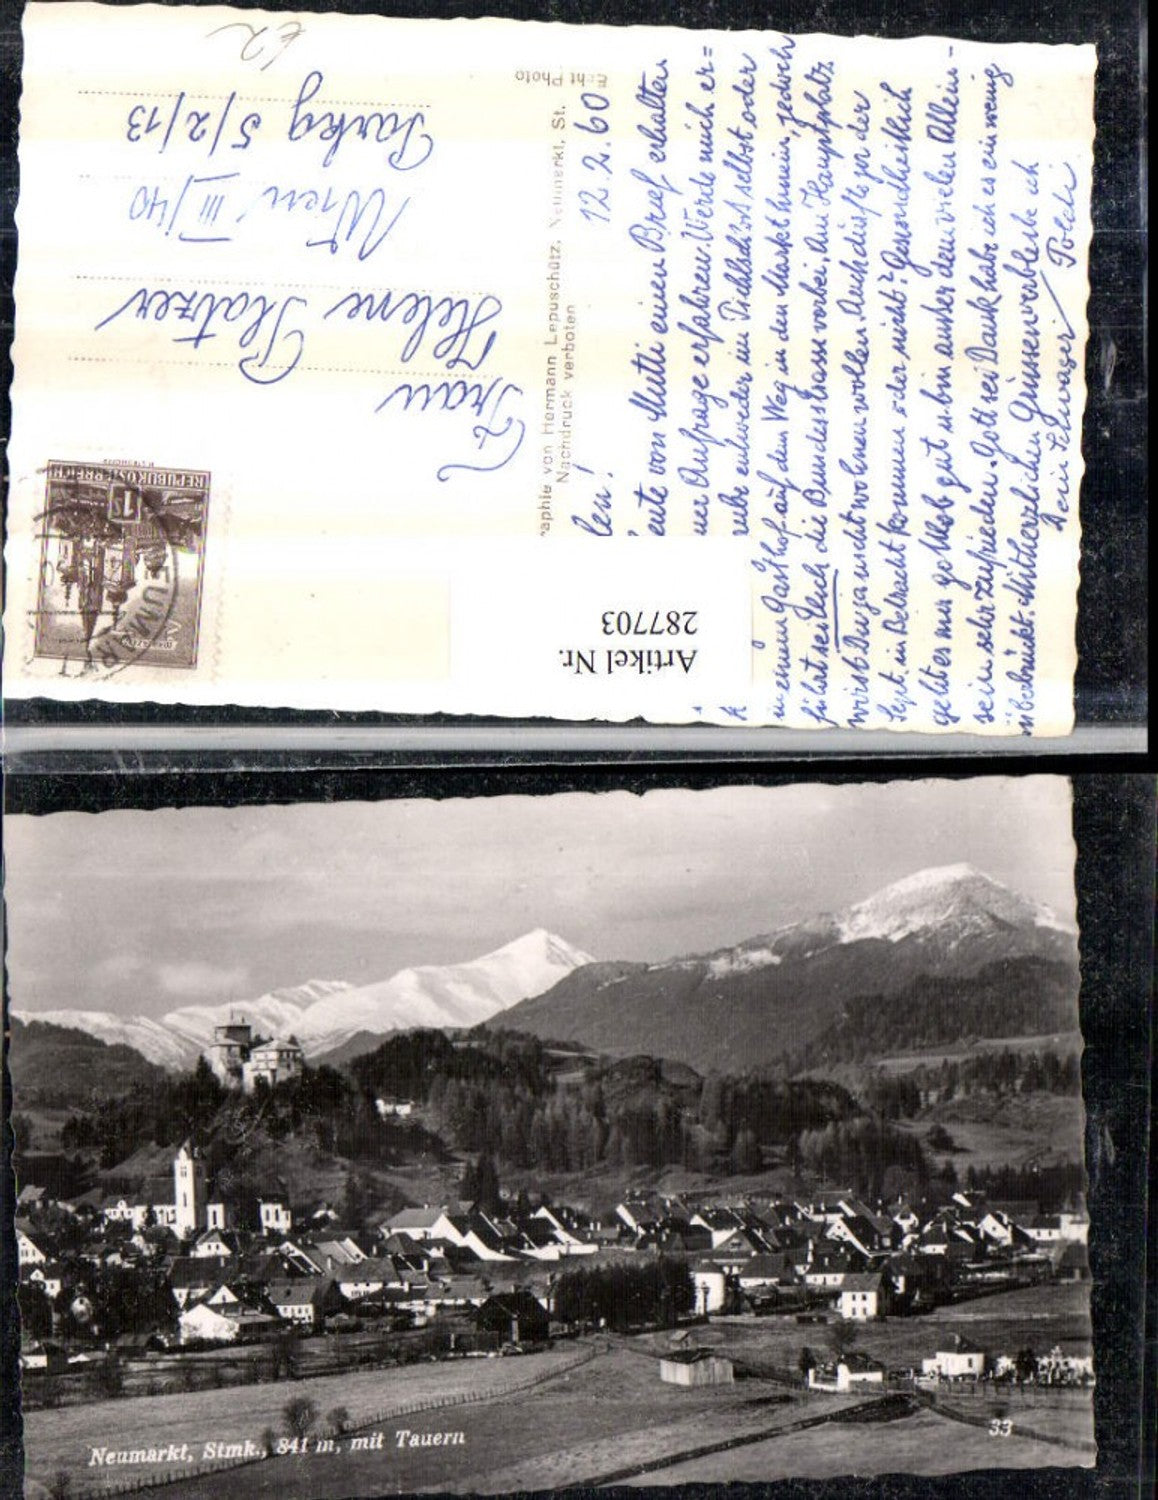 12.2.60
len!
eute von Mutti einen Brief erhalten
ner Anfrage erfahren. Werde mich er=
ube entweder im Pichlschloss selbst oder
in einem Gasthof auf dem Weg in den Markt hinein, jedoch
führt seitlich die Bundesstrasse vorbei. Am Hauptplatz
wirst Du ja nicht wohnen wollen. Auch dürfte ja der
Sept. in Betracht kommen oder nicht? Gesundheitlich
geht es mir gottlob gut u. bin ausser dem vielen Allein-
sein sehr zufrieden. Gott sei Dank habe ich es ein wenig
überbrückt. Mit herzlichen Grüssen verbleibe ich
Dein Schwager Poldi.
Artikel Nr.
287703
aphie von Hermann Lepuschütz, Neumarkt, St.
Nachdruck verboten
Echt Photo
REPUBLIK ÖSTERREICH
1 S
NEUMARKT
Frau
Helene Platzer
Wien III/40
Parkg 5/2/13
€2
Neumarkt, Stmk., 841 m, mit Tauern
33